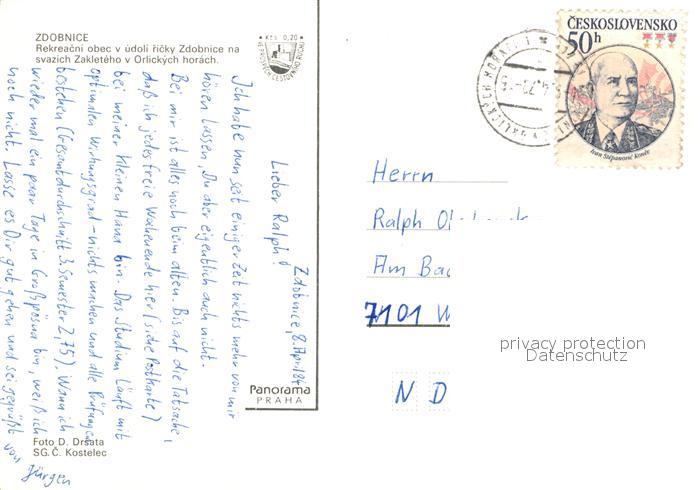 ZDOBNICE
Rekreační obec v údolí říčky Zdobnice na
svazích Zakletého v Orlických horách.
Kčs 0,20
VE PROSPĚCH CESTOVNÍHO RUCHU
ČESKOSLOVENSKO
50h
Ivan Štěpanovič Koněv
Zdobnice, 8. April 84
Lieber Ralph!
Ich habe nun seit einiger Zeit nichts mehr von mir
hören lassen. Du aber eigentlich auch nicht.
Bei mir ist alles noch beim alten. Bis auf die Tatsache,
daß ich jedes freie Wochenende hier (siehe Postkarte)
bei meiner kleinen Hana bin. Das Studium läuft mit
optimalen Wirkungsgrad - nichts machen und alle Prüfungen
bestehen (Gesamtdurchschnitt 3. Semester 2,75). Wann ich
wieder mal ein paar Tage in Großpösna bin, weiß ich
noch nicht. Lasse es Dir gut gehen und sei gegrüßt von
Jürgen
Herrn
Ralph
Am
7101
N D
privacy protection
Datenschutz
Panorama
PRAHA
Foto D. Drsata
SG. Č. Kostelec